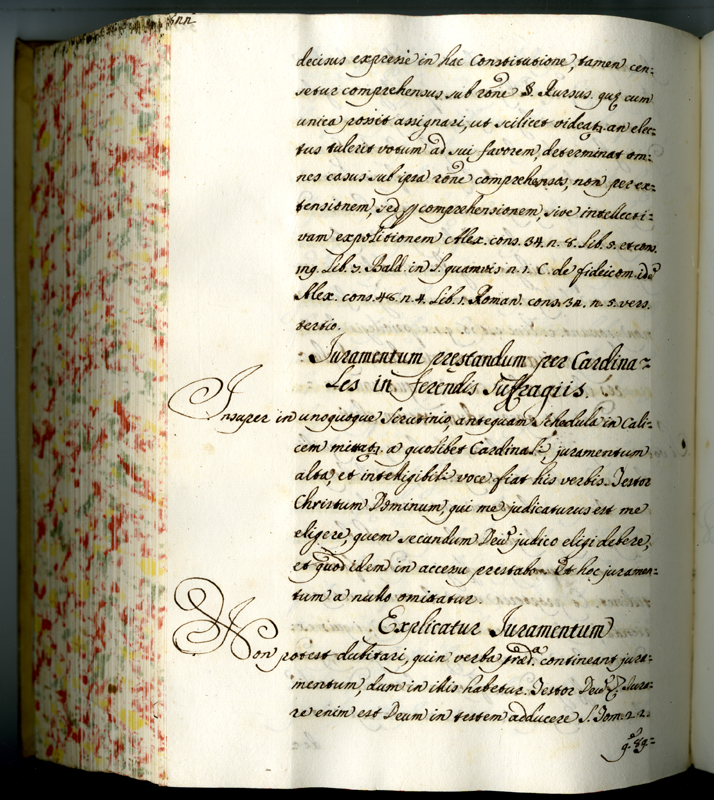 decisus expresse in hac Constitutione, tamen cen-
setur comprehensus sub rõne §. Rursus. quę cum
unica possit assignari, ut scilicet videat., an elec-
tus tulerit votum ad sui favorem, determinat om-
nes casus sub ipsa rõne comprehensos, non per ex-
tensionem, sed p comprehensionem, sive intellecti-
vam expositionem Alex. cons. 34. n. 8. Lib. 5. et cons.
119. Lib. 3. Bald. in L. quamvis n. 1. C. de fideicom. idẽ
Alex. cons. 48. n. 4. Lib. 1. Roman. cons. 34. n. 5. vers.
tertio.
Juramentum prestandum per Cardina-
les in ferendis Suffragiis.
Insuper in unoquoque Scrutinio, antequam schedula in Cali-
cem mittat. a quolibet Cardinali, juramentum
alta, et intelligibili voce fiat his verbis. Testor
Christum Dominum, qui me judicaturus est me
eligere, quem secundum Deũ judico eligi debere,
et quod idem in accessu prestabo. Et hoc juramen-
tum a nullo omittatur.
Explicatur Juramentum
Non potest dubitari, quin verba præd.a contineant jura-
mentum, dum in illis habetur. Testor Deũ Jura-
re enim est Deum in testem adducere S. Tom. 2. 2.
q. 89.